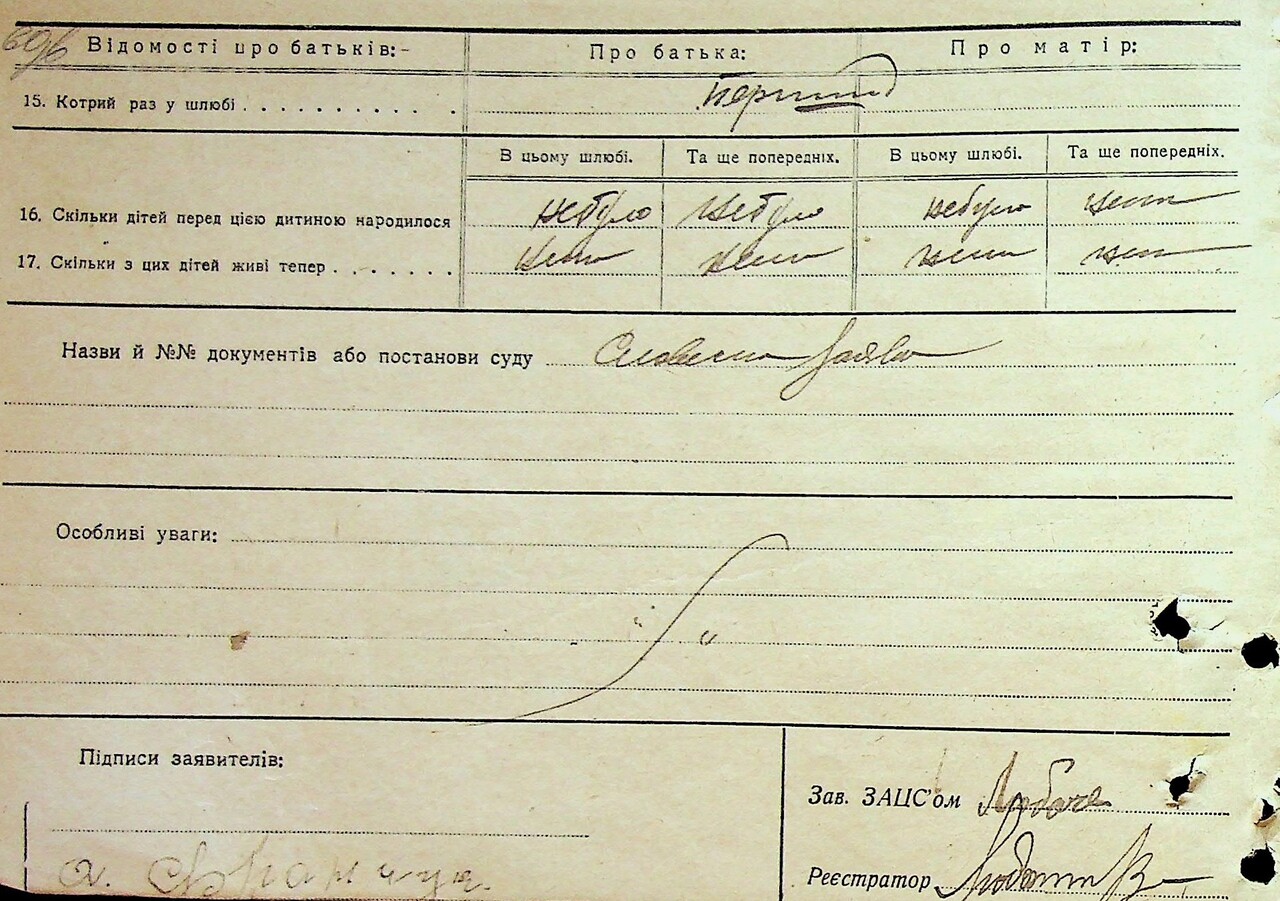 696 Відомості про батьків:- Про батька: Про матір:
15. Котрий раз у шлюбі Перший
В цьому шлюбі. Та ще попередніх. В цьому шлюбі. Та ще попередніх.
16. Скільки дітей перед цією дитиною народилося небуло небуло небуло нема
17. Скільки з цих дітей живі тепер нема нема нема нема
Назви й №№ документів або постанови суду Словесна заява
Особливі уваги:
Підписи заявителів:
Зав. ЗАЦС'ом
Реєстратор